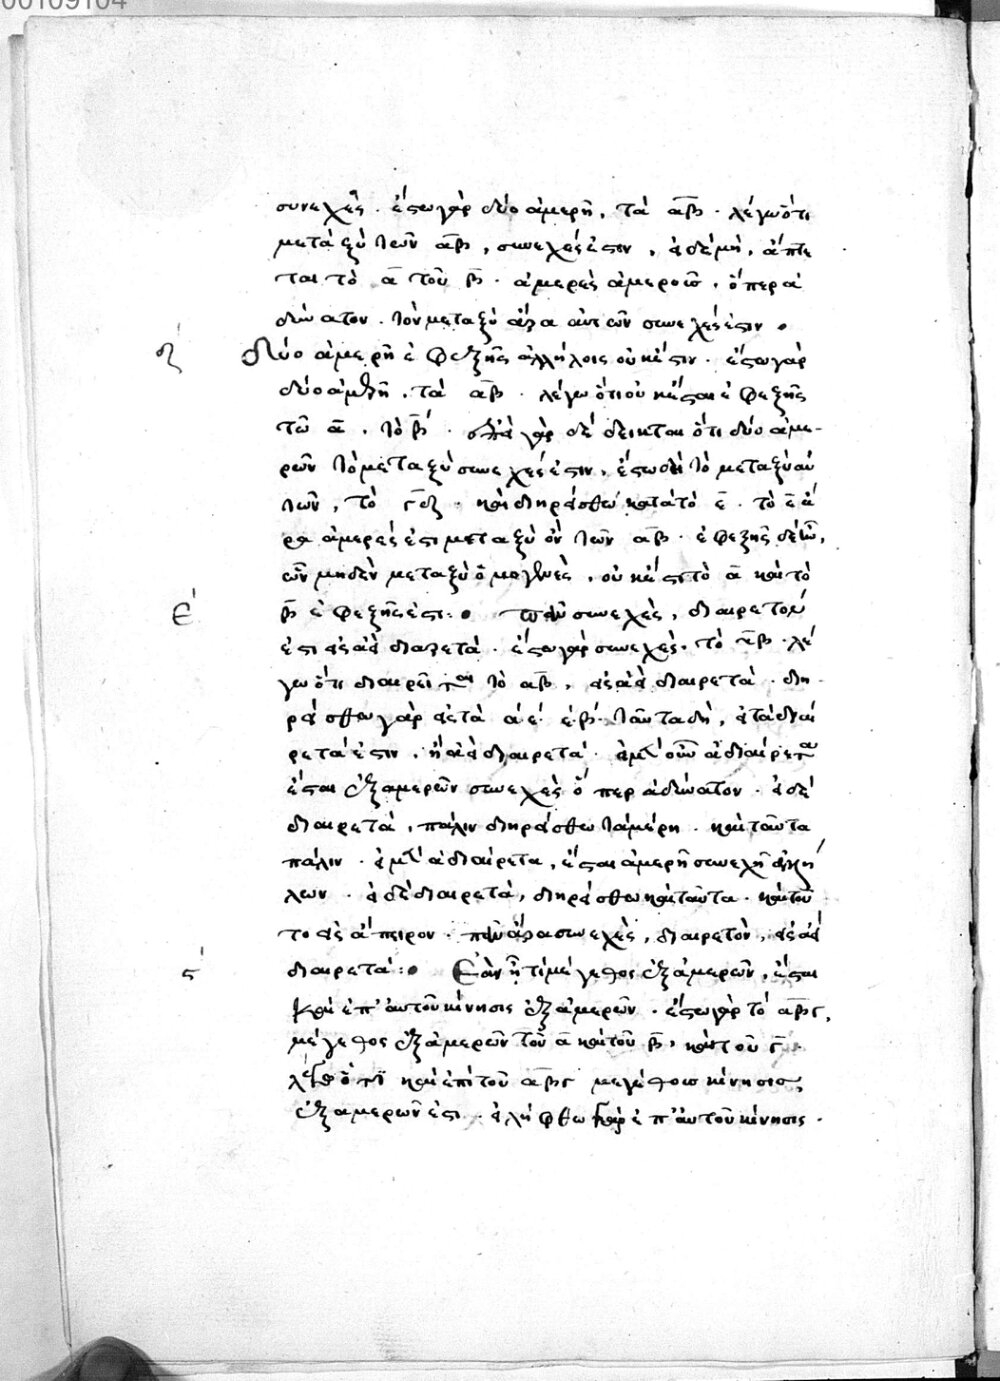 00109104
συνεχὲς · ἔστω γὰρ δύο ἀμερῆ, τὰ α̅β̅ · λέγω ὅτι
μεταξὺ τῶν α̅β̅, συνεχές ἐστιν, εἰ δὲ μὴ, ἅπτε
ται τὸ α̅ τοῦ β̅ · ἀμερὲς ἀμεροῦς · ὅπερ ἀ
δύνατον · τὸ μεταξὺ ἄρα αὐτῶν συνεχές ἐστιν ·
δ´ Δύο ἀμερῆ ἐφεξῆς ἀλλήλοις οὐκ ἔστιν · ἔστω γὰρ
δύο ἀμερῆ, τὰ α̅β̅ · λέγω ὅτι οὐκ ἔσται ἐφεξῆς
τῶ α̅, τὸ β̅ · γὰρ δέδεικται ὅτι δύο ἀμε-
ρῶν τὸ μεταξὺ συνεχές ἐστιν, ἔστω δὴ τὸ μεταξὺ αὐ
τῶν, τὸ γ̅δ̅ · καὶ διηρήσθω κατὰ τὸ ε̅ · τὸ ε̅ ἄ
ρα ἀμερές ἐστι μεταξὺ ὂν τῶν α̅β̅ · ἐφεξῆς δὲ ἦν,
ὧν μηδὲν μεταξὺ ὁμογενὲς, οὐκ ἔστι τὸ α̅ καὶ τὸ
β̅ ἐφεξῆς ἐστι :
ε´ Πᾶν συνεχὲς, διαιρετόν
ἐστι εἰς ἀεὶ διαιρετὰ · ἔστω γὰρ συνεχὲς, τὸ α̅β̅ · λέ
γω ὅτι διαιρεῖται τὸ α̅β̅, εἰς ἀεὶ διαιρετὰ · διῃ
ρήσθω γὰρ εἰς τὰ α´ε´ ε´β´ · ταῦτα δὴ, ἤτοι διαι
ρετά ἐστιν, ἢ ἀδιαίρετα · εἰ μὲν οὖν ἀδιαίρετα
ἔσται ἐξ ἀμερῶν συνεχὲς ὅπερ ἀδύνατον · εἰ δὲ
διαιρετὰ, πάλιν διηρήσθω τὰ μέρη · καὶ ταῦτα
πάλιν · εἰ μὲν ἀδιαίρετα, ἔσται ἀμερῆ συνεχῆ ἀλλή
λων · εἰ δὲ διαιρετὰ, διηρήσθω καὶ ταῦτα · καὶ τοῦ
το εἰς ἄπειρον · πᾶν ἄρα συνεχὲς, διαιρετὸν, εἰς ἀεὶ
διαιρετά :
ϛ´ Ἐὰν ἦ τι μέγεθος ἐξ ἀμερῶν, ἔσται
καὶ ἐπ' αὐτοῦ κίνησις ἐξ ἀμερῶν · ἔστω γὰρ τὸ α̅β̅γ̅,
μέγεθος ἐξ ἀμερῶν τοῦ α̅ καὶ τοῦ β̅, καὶ τοῦ γ̅ ·
λέγω ὅτι καὶ ἐπὶ τοῦ α̅β̅γ̅ μεγέθους κίνησις
ἐξ ἀμερῶν ἐστι · εἰλήφθω γὰρ ἐπ' αὐτοῦ κίνησις ·